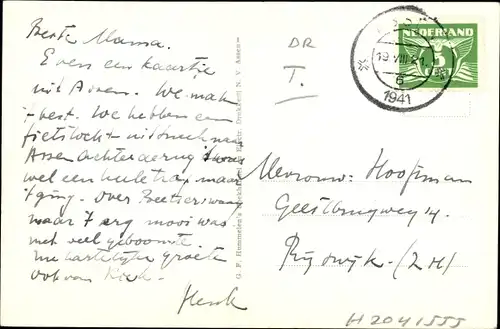 Beste Mama.
Even een kaartje
uit Assen. We maken
't best. We hebben een
fietstocht - uitstuch naar
Assen Achter de rug 't was
wel een hele trap maar
't ging. Over Beetsterzwaag
maar 't erg mooi was
met veel geboomte.
me hartelijke groete
ook van Riek.
Henk
G. F. Hummelen's Boekhandel en Electr. Drukkerij N. V. Assen
DR
T.
NEDERLAND
5
CENT
19 VIII 21
6
1941
Mevrouw: Hooftman
Geestbrugweg 14
Rijswijk. (Z H)
H2041555